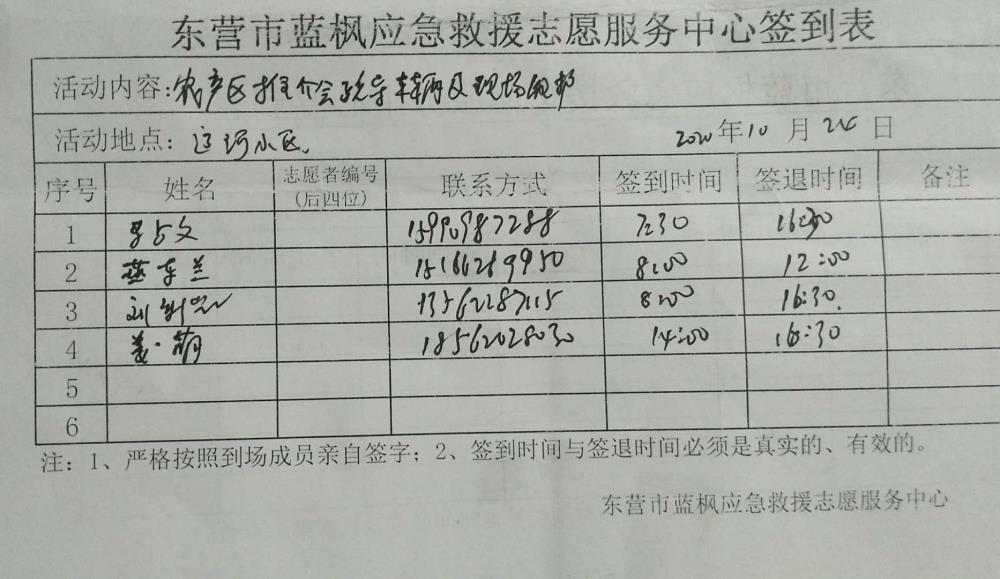 东营市蓝枫应急救援志愿服务中心签到表
活动内容:农产区推介会疏导车辆及现场维护
活动地点:辽河小区 2020年10月24日
序号 姓名 志愿者编号(后四位) 联系方式 签到时间 签退时间 备注
1 7:30 16:30
2 15166289950 8:00 12:00
3 13562287115 8:00 16:30
4 姜萌 18562028030 14:00 16:30
5
6
注:1、严格按照到场成员亲自签字;2、签到时间与签退时间必须是真实的、有效的。
东营市蓝枫应急救援志愿服务中心